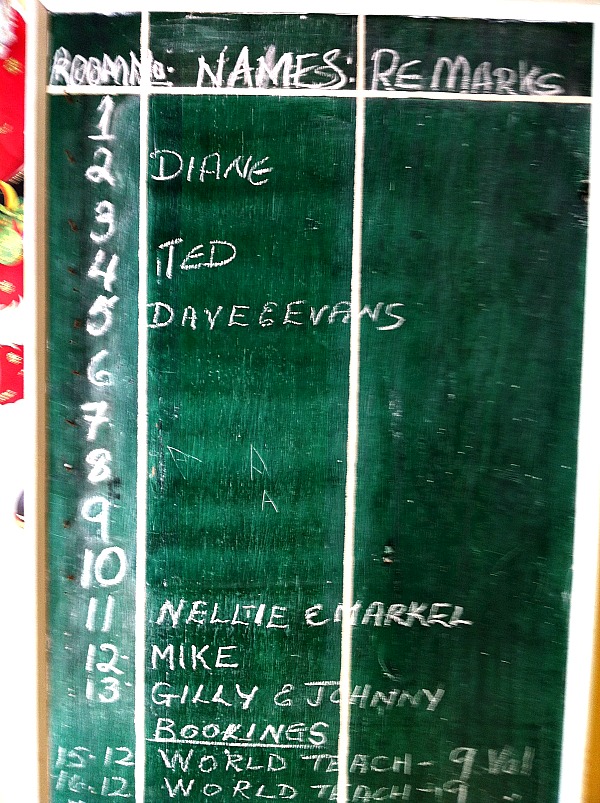 ROOM No: NAMES: REMARKS
1
2 DIANE
3
4 TED
5 DAVE & EVANS
6
7
8
9
10
11 NELLIE & MARKEL
12 MIKE
13 GILLY & JOHNNY
BOOKINGS
15-12 WORLD TEACH - 9 Vol
16-12 WORLD TEACH - 9 "